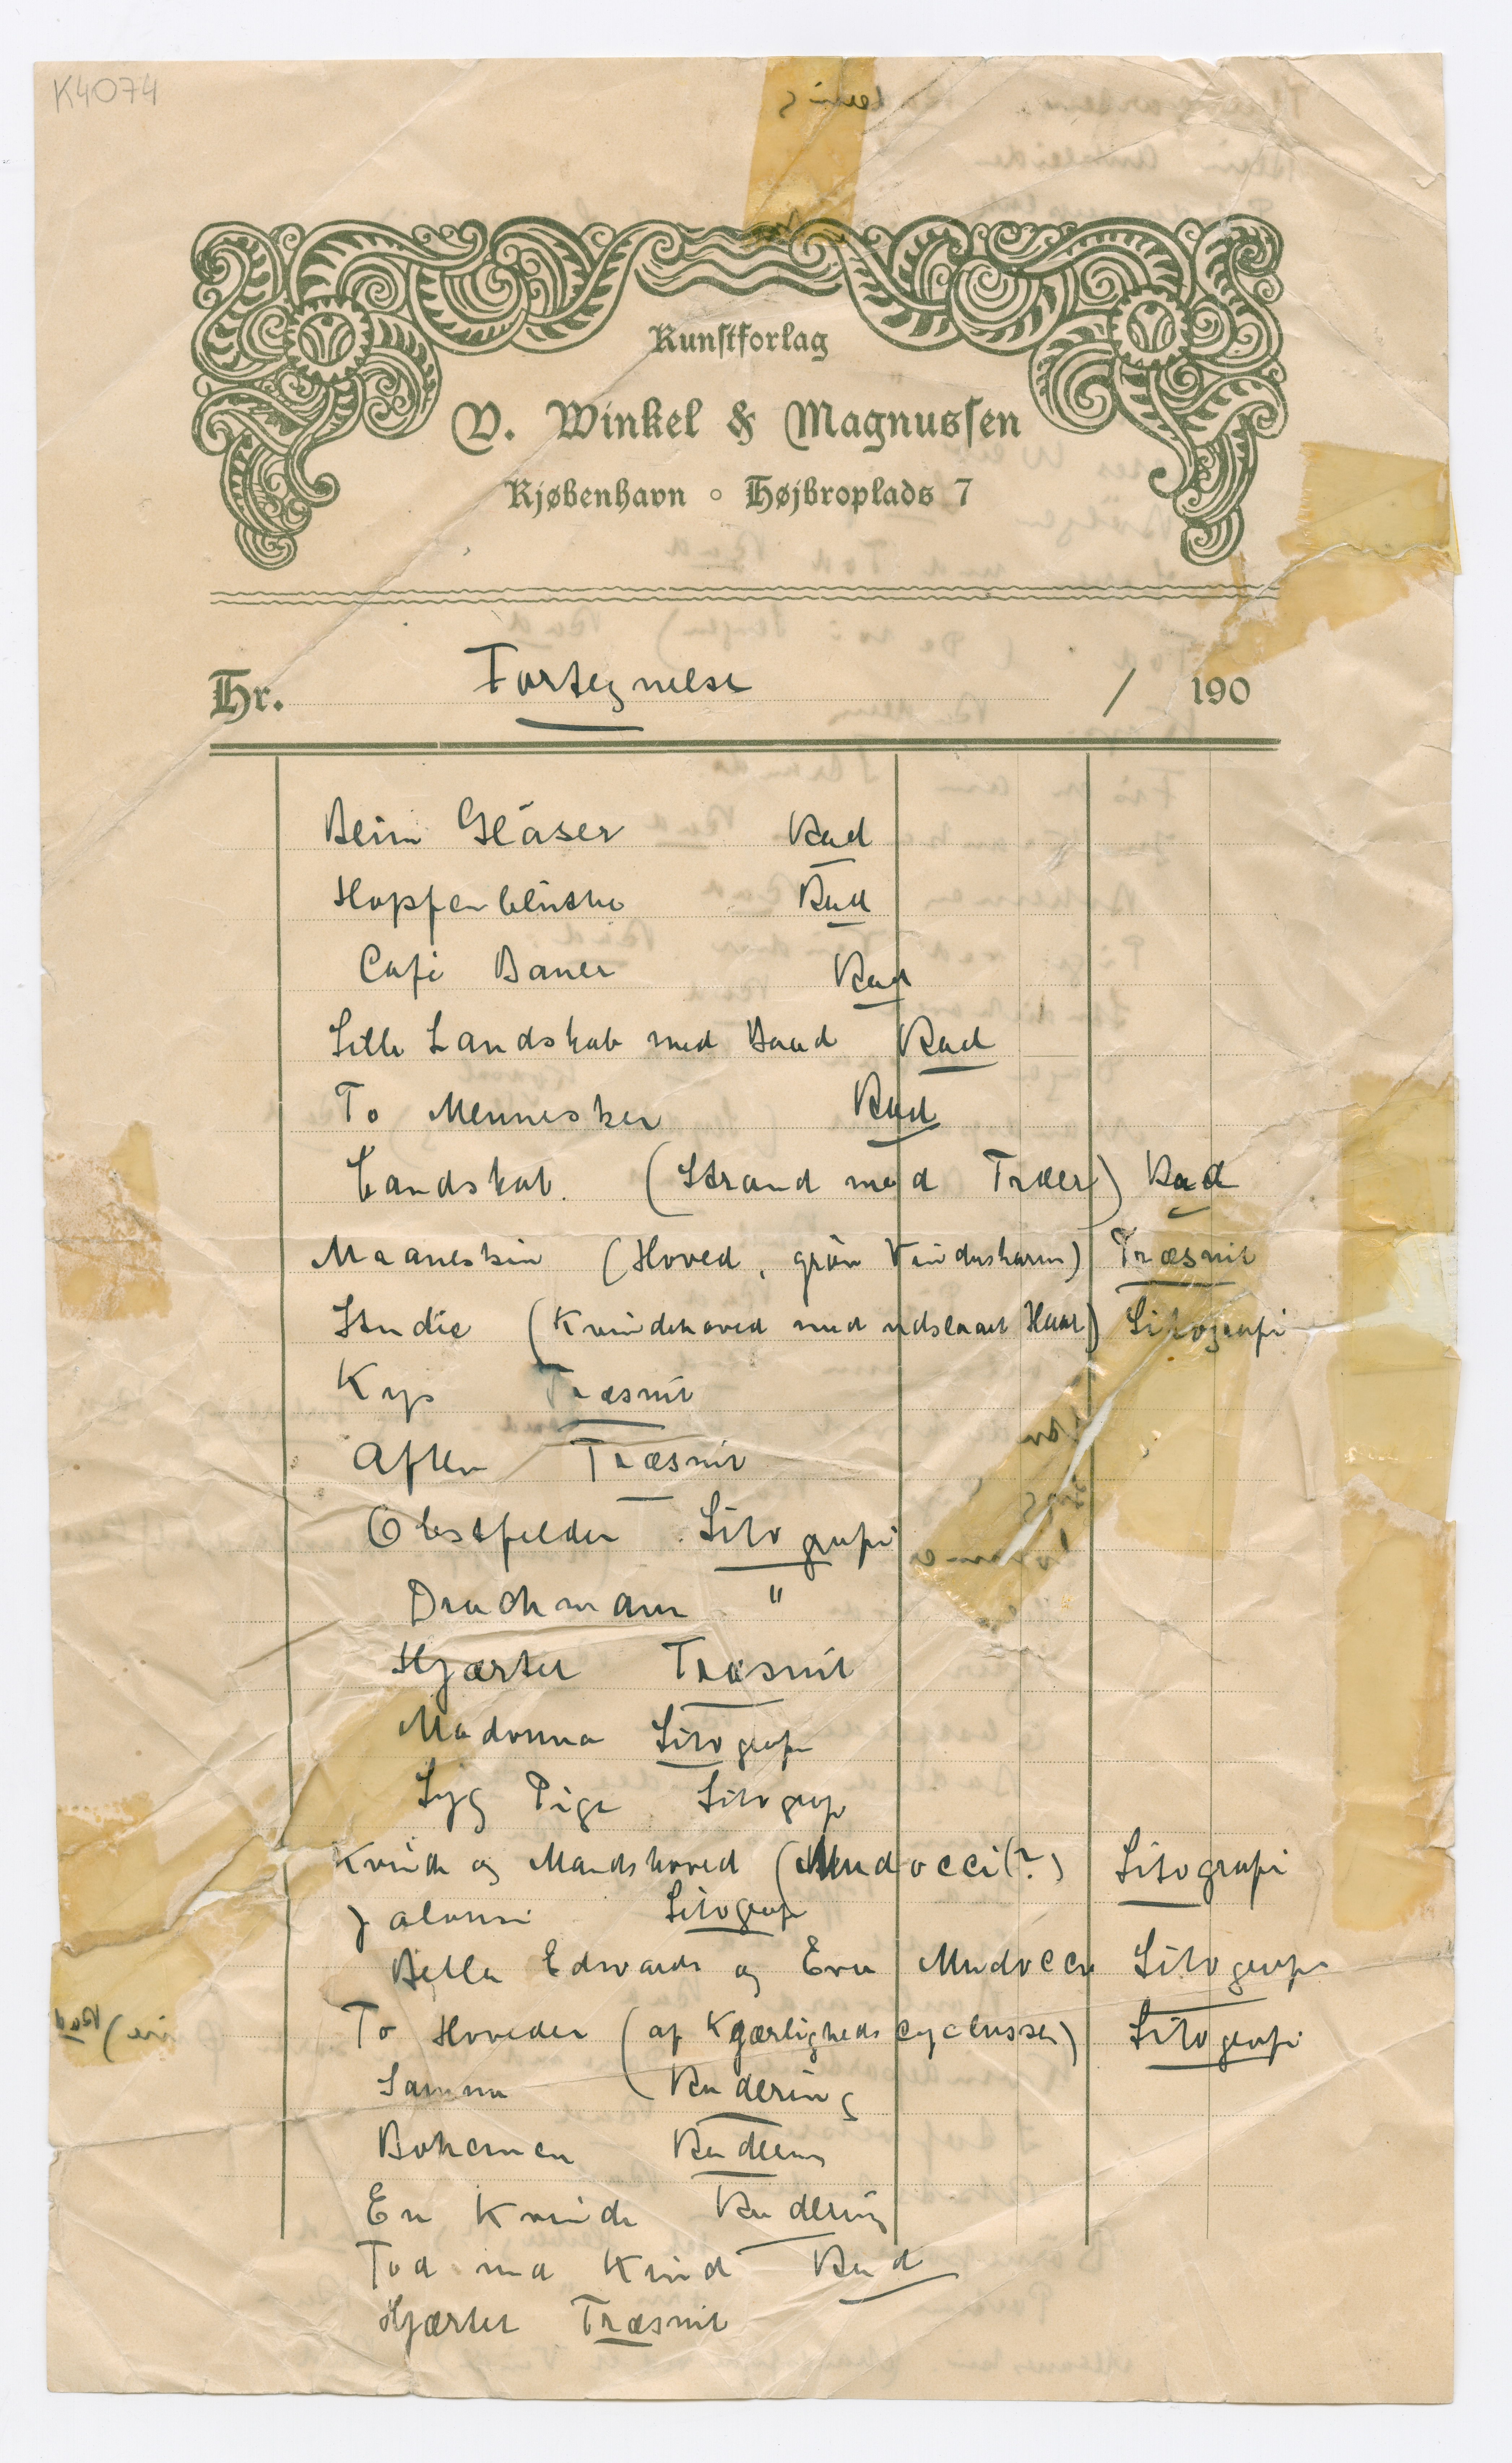 K4074
Kunstforlag
V. Winkel & Magnussen
Kjøbenhavn ○ Højbroplads 7
Hr. Fortegnelse / 190
Beim Gläser Rad
Hopfenblüthe Rad
Café Bauer Rad
Lille Landskab med Baad Rad
To Mennesker Rad
Landskab. (Strand med Træer) Rad
Maaneskin (Hoved, grøn Vindusharm) Træsnit
Studie (Kvindehoved med udslaaet Haar) Litografi
Kys Træsnit
Aften Træsnit
Obstfelder Litografi
Drachmann "
Hjærtet Træsnit
Madonna Litografi
Syg Pige Litograf
Kvinde og Mandshoved (Mudocci(?) Litografi
Jalousi Litografi
Bella Edwards og Eva Mudocci Litografi
To Hoveder (af Kjærligheds cyclussen) Litografi
Samme (Radering
Bohemen Radering
En Kvinde Radering
Tod und Kind Rad
Hjærtet Træsnit